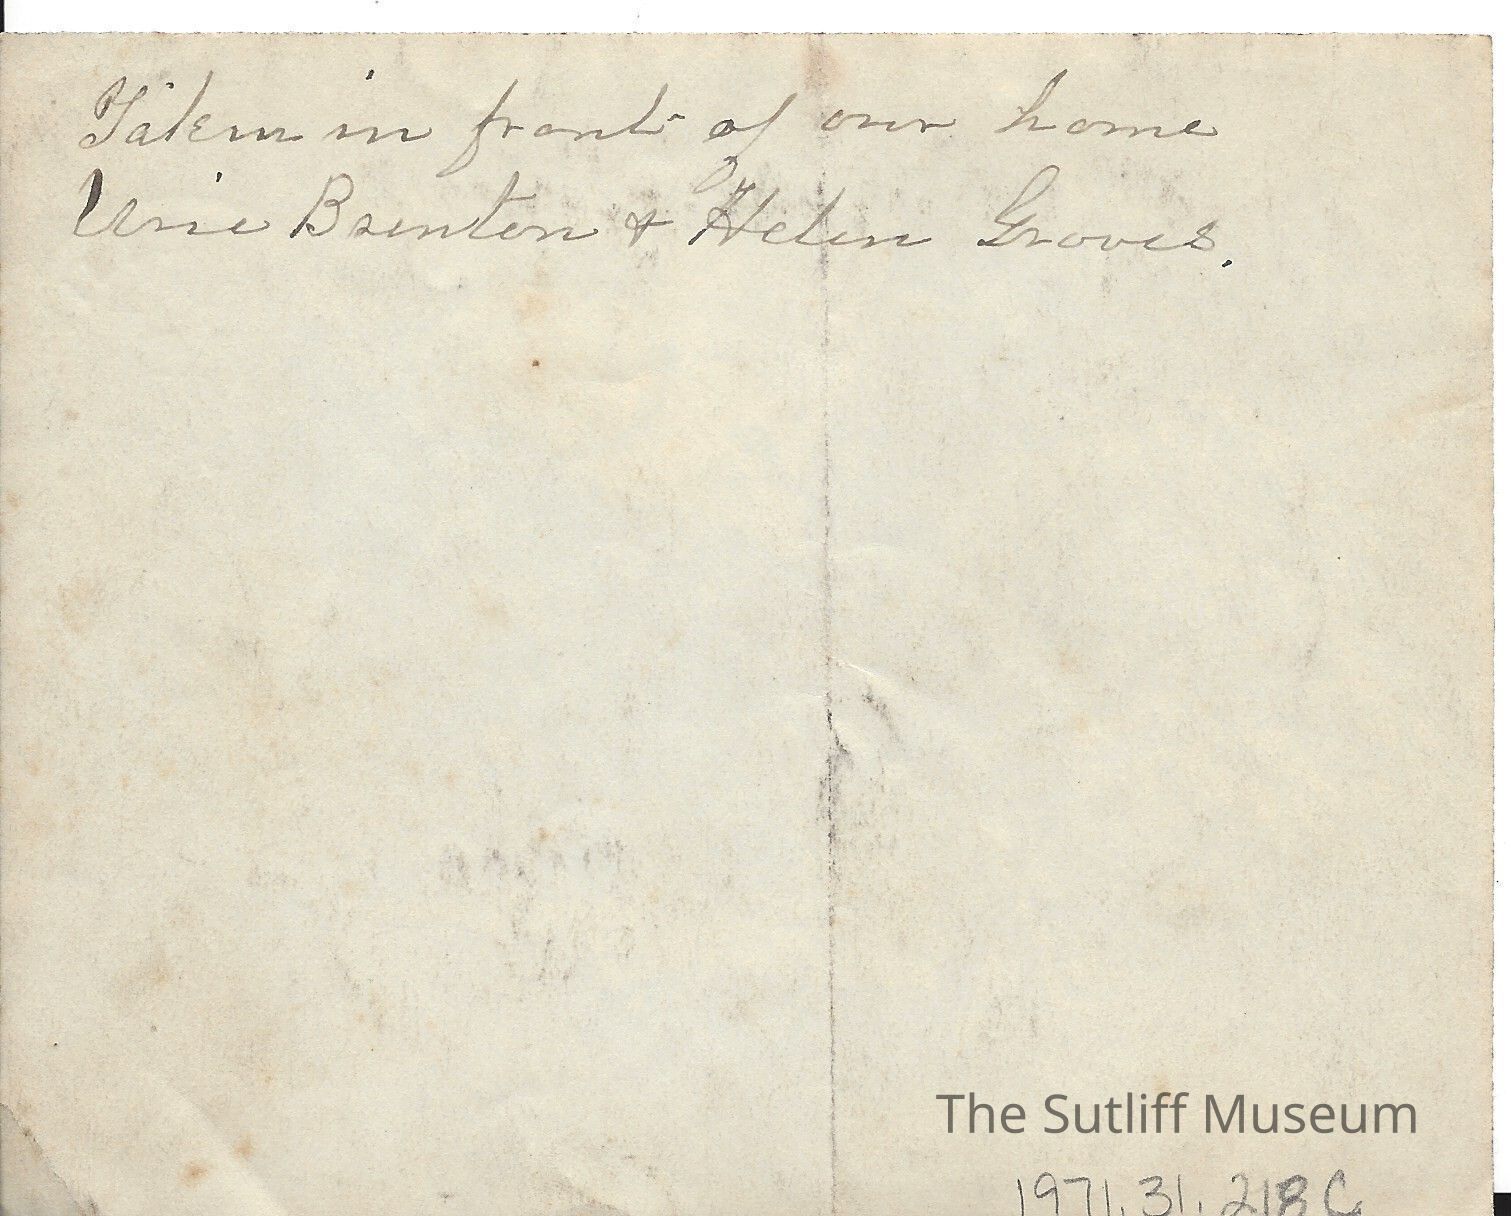 Taken in front of our home
Urie Brenton & Helen Groves.
The Sutliff Museum
1971.31.218C